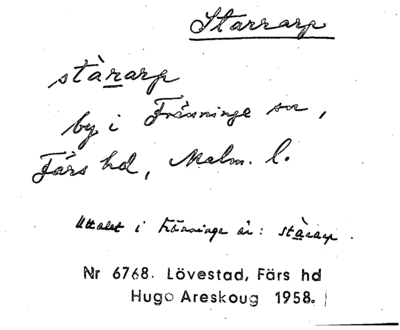 Starrarp
stàrarp
by i Tränninge sn,
Färs hd, Malm. l.
Uttalet i Tränninge är: stàrarp.
Nr 6768. Lövestad, Färs hd
Hugo Areskoug 1958.